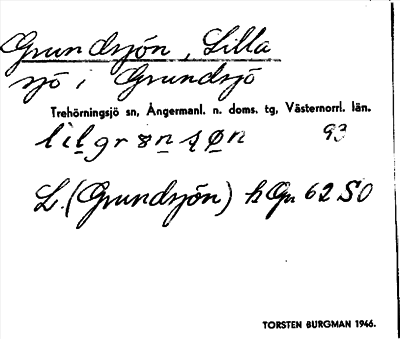 Grundsjön, Lilla
sjö i Grundsjö
Trehörningsjö sn, Ångermanl. n. doms. tg, Västernorrl. län.
93
L. (Grundsjön) h Gr 62 SO
TORSTEN BURGMAN 1946.